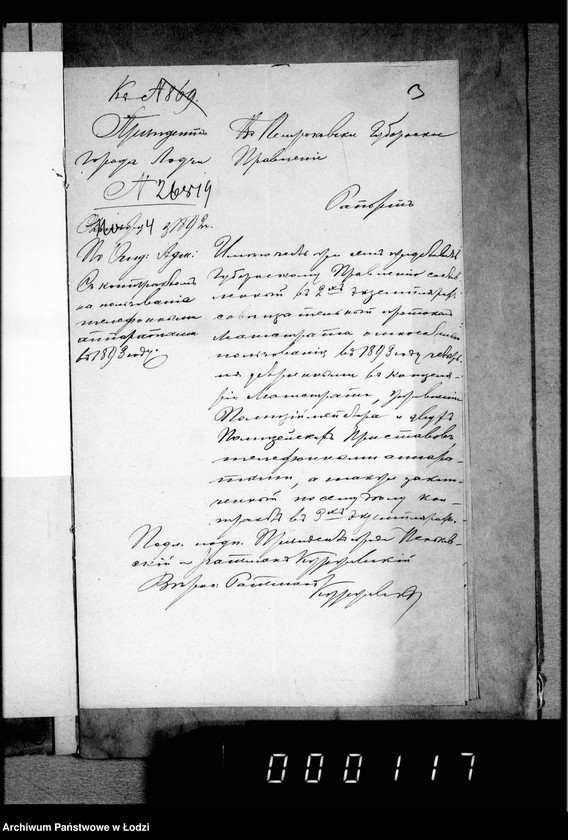 Къ № 869.
3
Президентъ
города Лодзи
№ 26519
4 1892 г.
По Общ. Адм:
Съ контрактомъ
на пользованіе
телефонными
аппаратами
въ 1893 году.
Въ Петроковское Губернское
Правленіе
Рапортъ
Имѣю честь при семъ представить
Губернскому Правленію состав-
ленной въ 2хъ экземплярахъ
совѣщательный протоколъ
Магистрата относительно
пользованія въ 1893 году четырь-
мя устроенными въ канцеля-
ріи Магистрата, Управленіи
Полиціймейстера и двухъ
Полицейскихъ Приставовъ
телефонными аппара-
тами, а также заклю-
ченный по сему дѣлу кон-
трактъ въ 3хъ экземплярахъ.
Подл. подп. Президентъ Пеньков-
скій и ратманъ
Вѣрно: Ратманъ
000117
Archiwum Państwowe w Łodzi